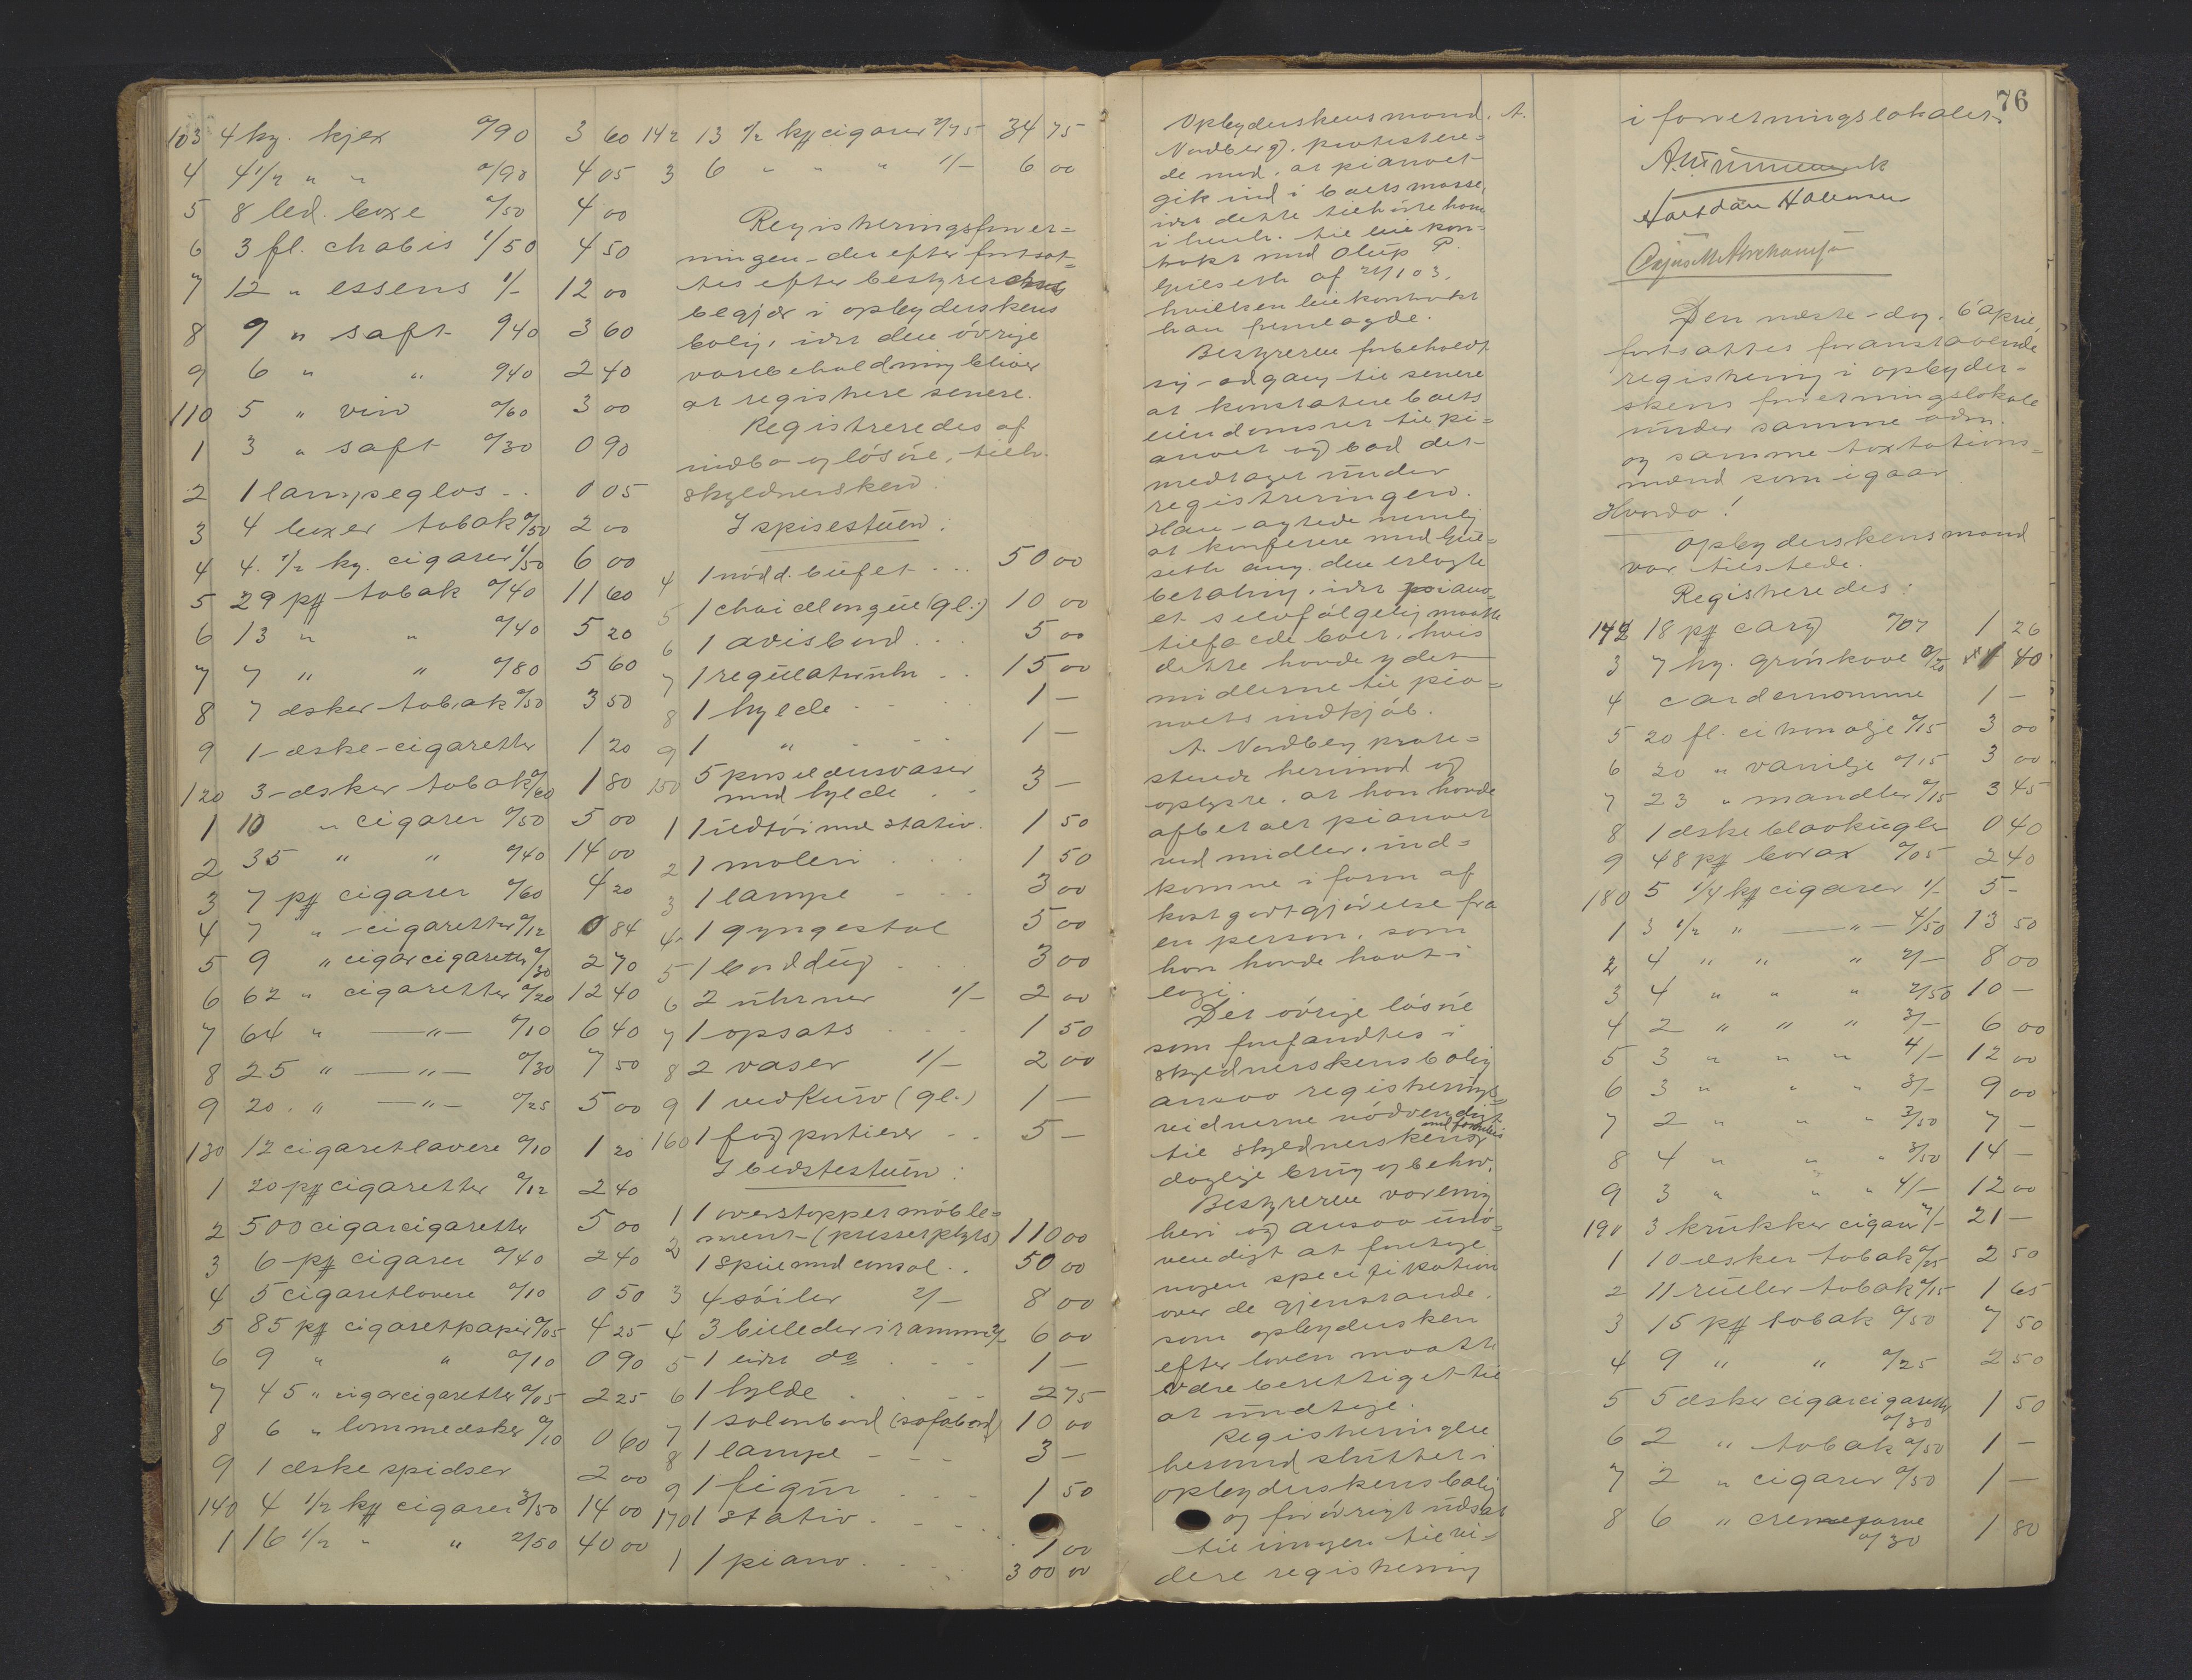 103 4 kg. kjex a/90 3 60
4 4 1/2 " " a/90 4 05
5 8 bld. boxe a/50 4 00
6 3 fl. chabis 1/50 4 50
7 12 " essens 1/- 12 00
8 9 " saft a/40 3 60
9 6 " " a/40 2 40
110 5 " vin a/60 3 00
1 3 " saft a/30 0 90
2 1 lampeglas .. 0 05
3 4 boxer tobak a/50 2 00
4 4 1/2 kg. cigarer 1/50 6 00
5 29 pk tobak a/40 11 60
6 13 " " a/40 5 20
7 7 " " a/80 5 60
8 7 æsker tobak a/50 3 50
9 1 æske cigaretter 1 20
120 3 æsker tobak a/60 1 80
1 10 " cigarer a/50 5 00
2 35 " " a/40 14 00
3 7 pk cigarer a/60 4 20
4 7 " cigaretter a/12 0 84
5 9 " cigarcigaretter a/30 2 70
6 62 " cigaretter a/20 12 40
7 64 " —"— a/10 6 40
8 25 " —"— a/30 7 50
9 20 " —"— a/25 5 00
130 12 cigaretlavere a/10 1 20
1 20 pk cigaretter a/12 2 40
2 500 cigarcigaretter 5 00
3 6 pk cigarer a/40 2 40
4 5 cigaretlavere a/10 0 50
5 85 pk cigaretpapir a/05 4 25
6 9 " " a/10 0 90
7 45 " cigarcigaretter a/05 2 25
8 6 " lommeæsker a/10 0 60
9 1 æske spidser 2 00
140 4 1/2 kg cigarer 3/50 14 00
1 16 1/2 " " 2/50 40 00
142 13 1/2 kg cigarer 2/75 34 75
3 6 " " " 1/- 6 00
Registreringsforret=
ningen derefter fortsat=
tes efter bestyrerens
begjær i opbyderskens
bolig, idet den övrige
varebeholdning bliver
at registrere senere.
Registreredes af
indbo og lösöre, tilh.
skyldnersken:
I spisestuen:
4 1 nödd. bufet ... 50 00
5 1 chaiselongue (gl.) 10 00
6 1 avisbord .. 5 00
7 1 regulatoruhr .. 15 00
8 1 hylde .... 1 —
9 1 " .... 1 —
150 5 porselænsvaser
med hylde .. 3 —
1 1 ildtöi med stativ. 1 50
2 1 maleri ... 1 50
3 1 lampe ... 3 00
4 1 gyngestol 5 00
5 1 borddug .. 3 00
6 2 uhrner 1/- 2 00
7 1 opsats ... 1 50
8 2 vaser 1/- 2 00
9 1 vedkurv (gl.) 1 —
160 1 fag portierer .. 5 —
I bedstestuen:
1 1 overstoppet möble=
ment (presset plyds) 110 00
2 1 speil med consol .. 50 00
3 4 söiler 2/- 8 00
4 3 billeder i ramme 2/- 6 00
5 1 lidet do ... 1 —
6 1 hylde .... 2 75
7 1 salonbord (sofabord) 10 00
8 1 lampe ... 3 —
9 1 figur ... 1 50
170 1 stativ .... 1 00
1 1 piano .... 300 00
Opbyderskens mand, A.
Nordberg, protestere=
de mod, at pianoet
gik ind i boets masse,
idet dette tilhörte ham
i henh. til leiekon=
trakt med Oluf P.
af 24/1 03,
hvilken leiekontrakt
han fremlagde.
Bestyreren forbeholdt
sig adgang til senere
at konstatere boets
eiendomsret til pi=
anoet og bad det
medtaget under
registreringen.
Han agtede nemlig
at konferere med
ang. den erlagte
betaling, idet piano=
et selvfölgelig maatte
tilfalde boet, hvis
dette havde ydet
midlerne til pia=
noets indkjöb.
A. Nordberg prote=
sterede herimod og
oplyste, at han havde
afbetalt pianoet
med midler, ind=
komne i form af
kostgodtgjörelse fra
en person, som
han havde havt i
logi.
Det övrige lösöre
som forefandtes i
skyldnerskens bolig
ansaa registrerings=
vidnerne nödvendigt
til skyldnerskens med familie
daglige brug og behov.
Bestyreren var enig
heri og ansaa unö=
vendigt at foretage
nogen specifikation
over de gjenstande,
som opbydersken
efter loven maatte
være berettiget til
at undtage.
Registreringen
hermed sluttet i
opbyderskens bolig
og forövrigt udsat
til imorgen til vi=
dere registrering
76
i forretningslokalet.
Den næste dag, 6 april,
fortsattes foranstaaende
registrering i opbyder=
skens forretningslokale
under samme adm.
og samme taxtations=
mænd som igaar.
Hvorda!
Opbyderskens mand
var tilstede.
Registreredes:
172 18 pk cary a/07 1 26
3 7 kg. grönkaae a/20 1 40
4 cardemomme 1 —
5 20 fl. citronolje a/15 3 00
6 20 " vanilje a/15 3 00
7 23 " mandler a/15 3 45
8 1 æske blaakugler 0 40
9 48 pk borax a/05 2 40
180 5 1/4 kg cigarer 1/- 5 -
1 3 1/2 " —"— 4/50 13 50
2 4 " " " 2/- 8 00
3 4 " " " 2/50 10 —
4 2 " " " 3/- 6 00
5 3 " " " 4/- 12 00
6 3 " " " 3/- 9 00
7 2 " " " 3/50 7 —
8 4 " " " 3/50 14 —
9 3 " " " 4/- 12 00
190 3 krukker cigarer 7/- 21 —
1 10 æsker tobak a/25 2 50
2 11 ruller tobak a/15 1 65
3 15 pk tobak a/50 7 50
4 9 " " a/25 2 50
5 5 æsker cigarcigaretter
a/30 1 50
6 2 " tobak a/50 1 —
7 2 " cigarer a/50 1 —
8 6 " cremefarve
a/30 1 80